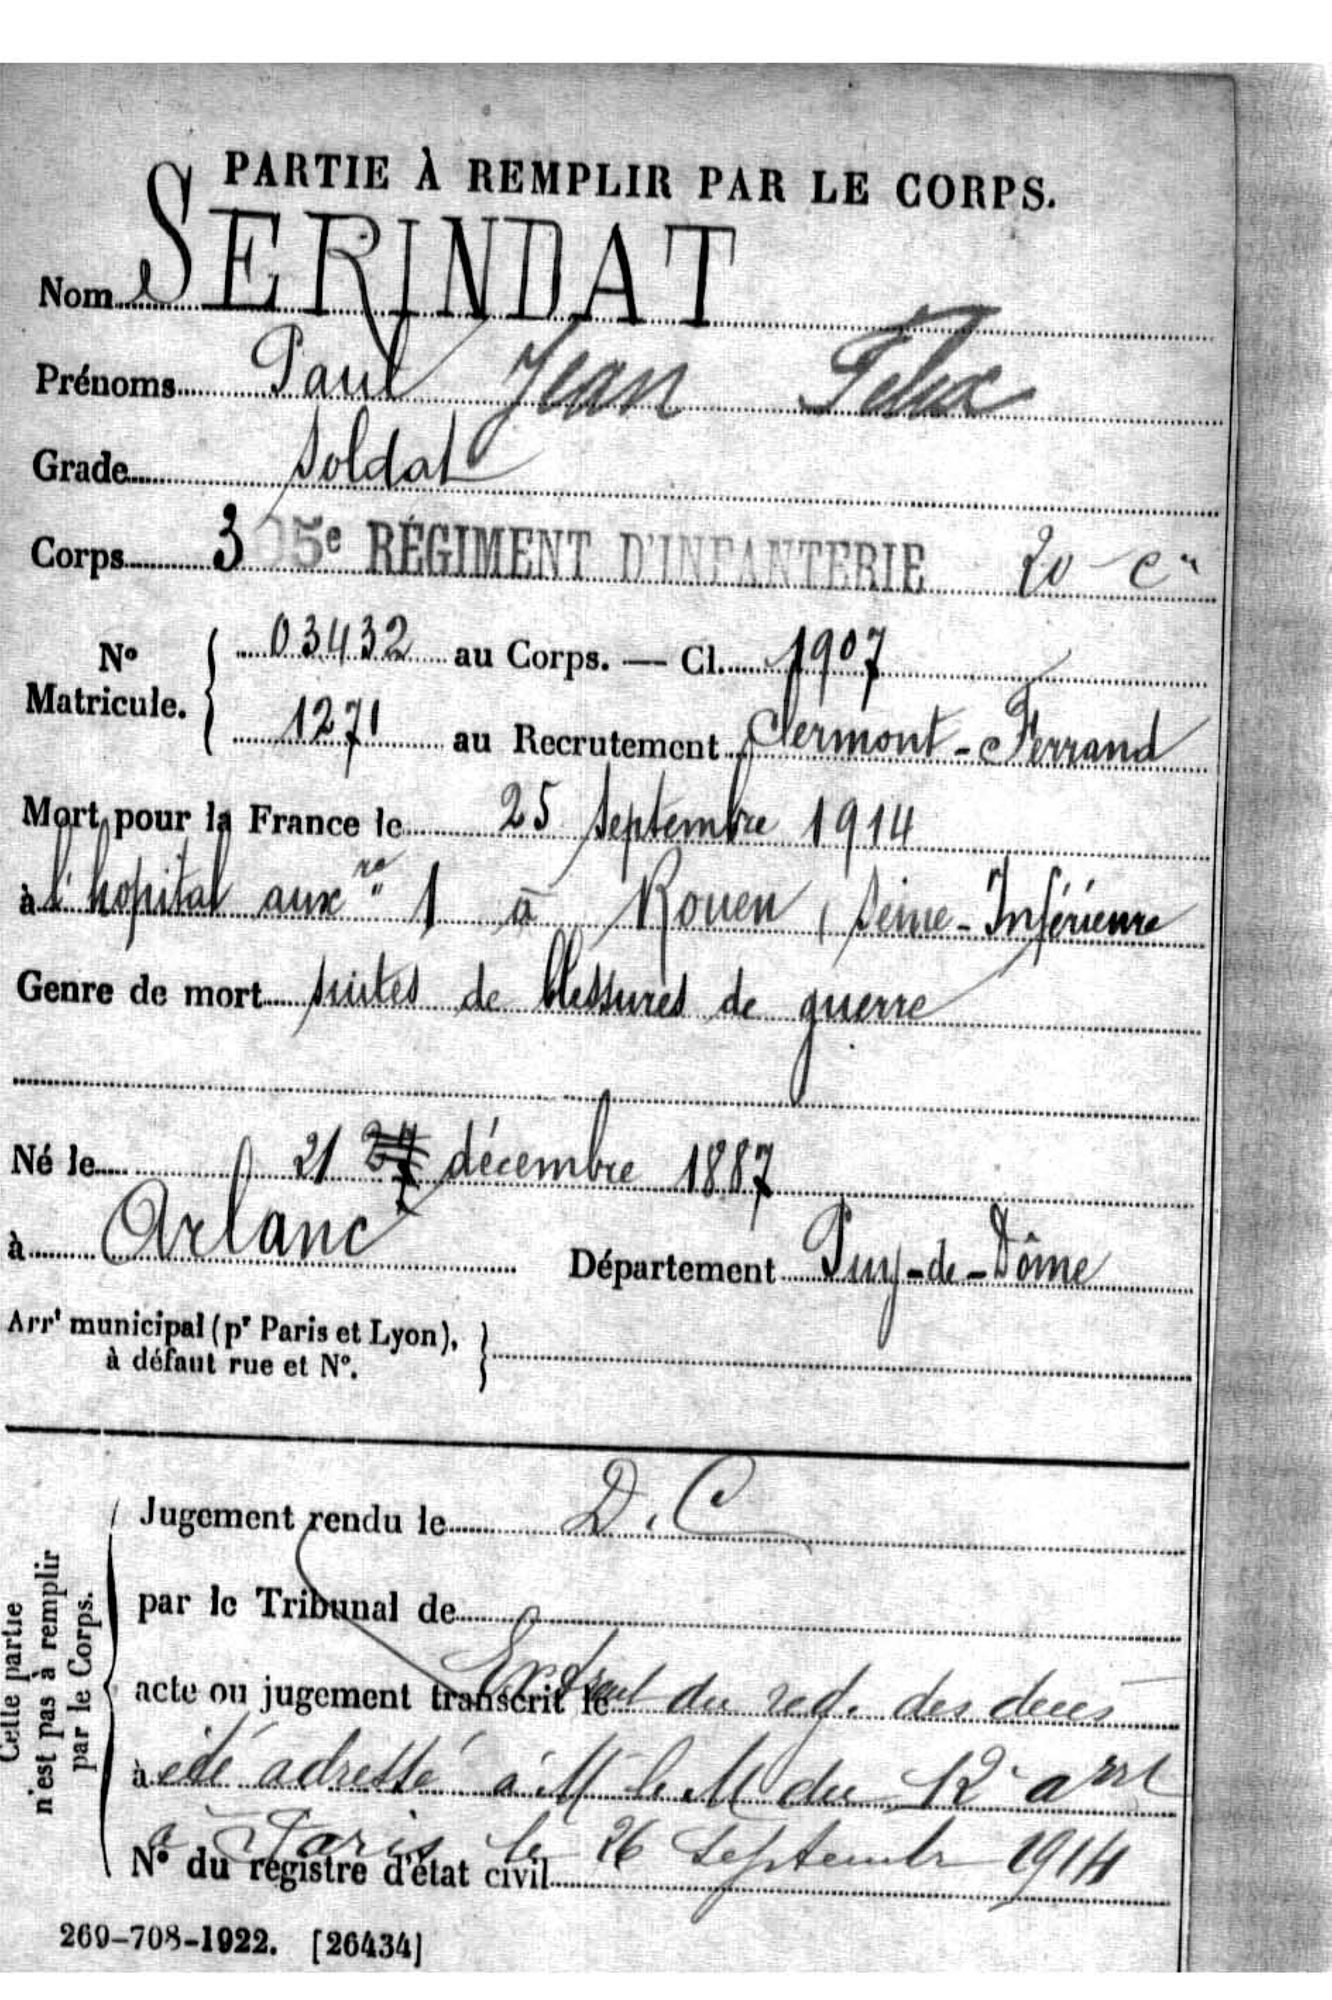 PARTIE À REMPLIR PAR LE CORPS.
Nom SERINDAT
Prénoms Paul Jean Felix
Grade Soldat
Corps 305e RÉGIMENT D'INFANTERIE 20 Cie
No Matricule. { 03432 au Corps. — Cl. 1907
1271 au Recrutement Clermont-Ferrand
Mort pour la France le 25 septembre 1914
à l'hopital auxre 1 à Rouen, Seine-Inférieure
Genre de mort suites de blessures de guerre
Né le 21 27 décembre 1887
à Arlanc Département Puy-de-Dôme
Arrt municipal (pr Paris et Lyon), à défaut rue et No. }
Cette partie n'est pas à remplir par le Corps.
Jugement rendu le D.C
par le Tribunal de
acte ou jugement transcrit le Extrait du reg. des deces
à été adressé à M le M du 12e arrt
à Paris le 26 Septembre 1914
No du registre d'état civil
269-708-1922. [26434]